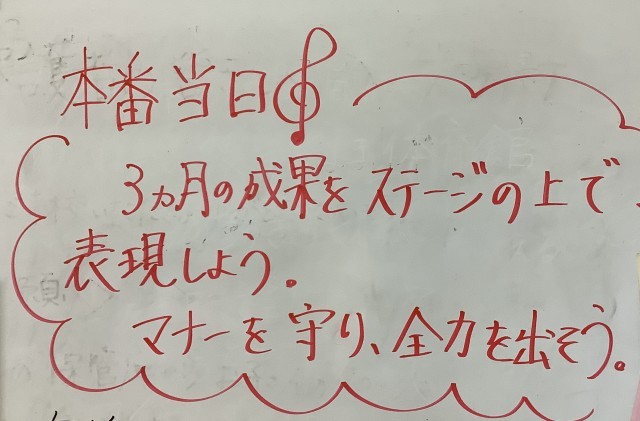 本番当日
3ヵ月の成果をステージの上で
表現しよう。
マナーを守り、全力を出そう。